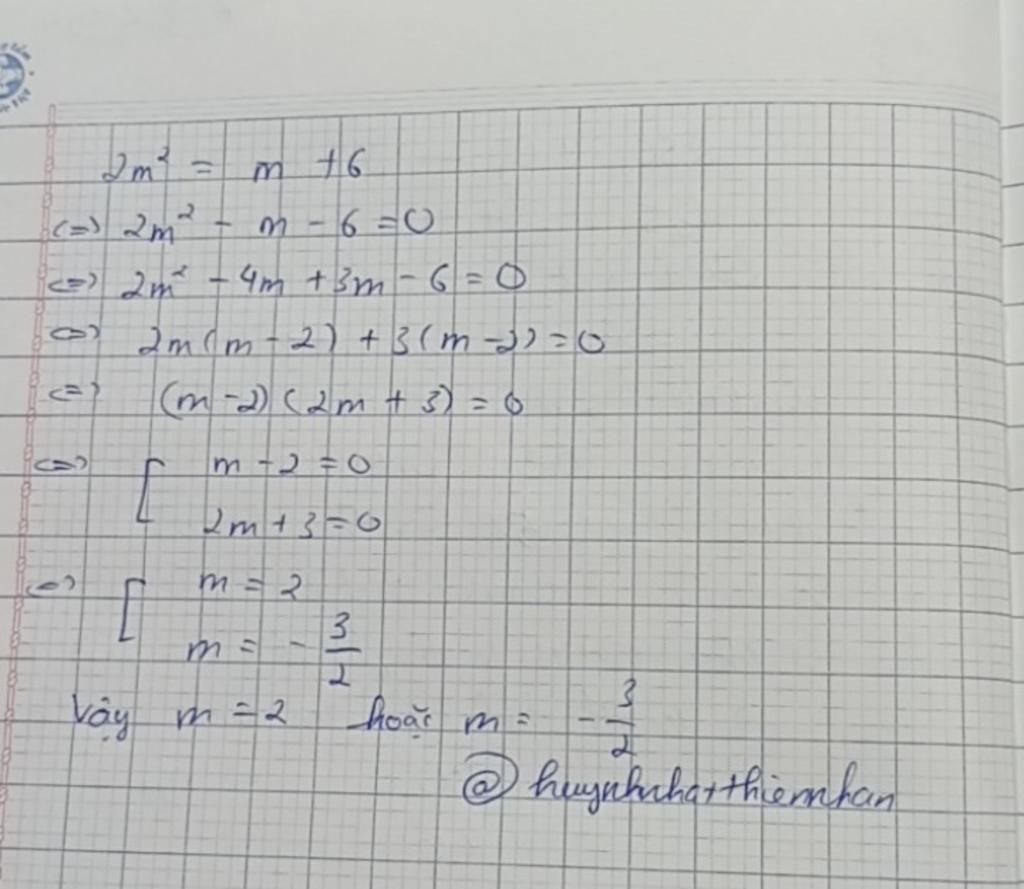 2m² = m + 6
<=> 2m² - m - 6 = 0
<=> 2m² - 4m + 3m - 6 = 0
<=> 2m(m - 2) + 3(m - 2) = 0
<=> (m - 2)(2m + 3) = 0
<=> [ m - 2 = 0
2m + 3 = 0
<=> [ m = 2
m = - 3/2
Vậy m = 2 hoặc m = - 3/2
@huynhnhatthiennhan